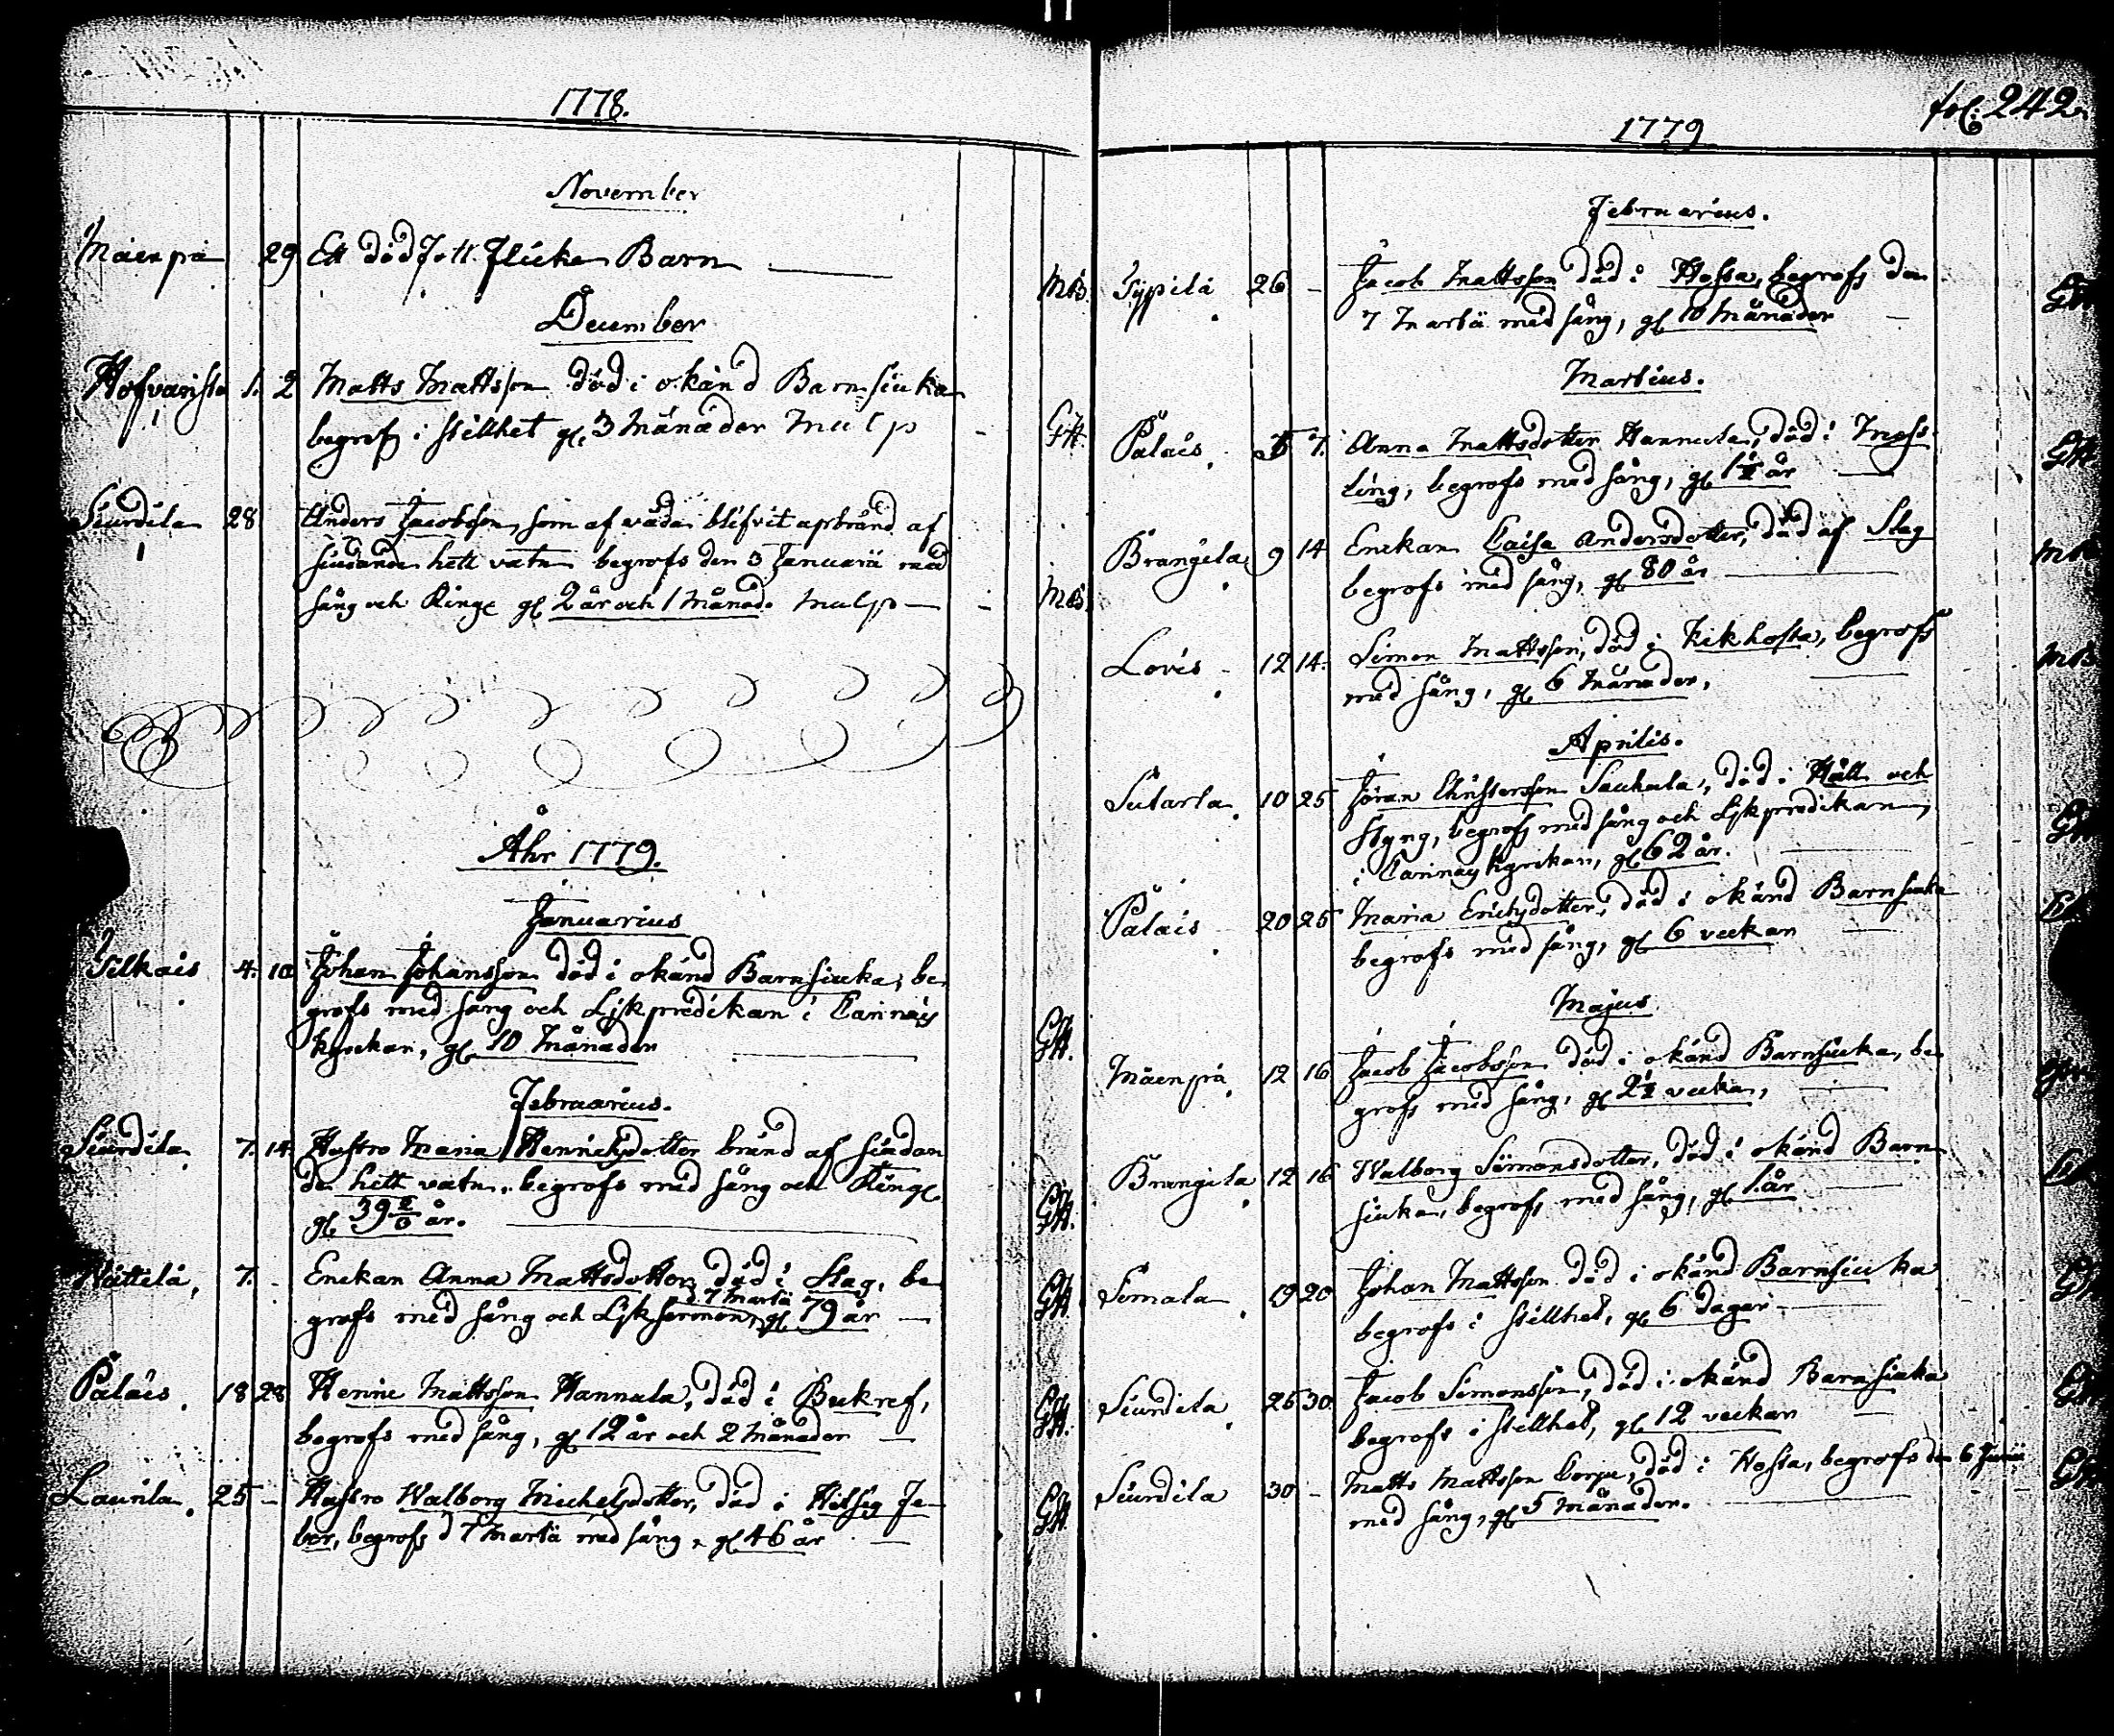 1778.
November
Mäenpä 29 Ett dödf. tt. flicke Barn
MB.
December
Hofvarista 1. 2 Matts Mattsson död i okänd Barnsiuka
begrofs i stillhet gl. 3 Månader Mulp
GH.
Siurdila 28 Anders Jacobsson, som af våda blifvit upbränd af
siudande hett vatn begrofs den 3 Januarii med
sång och Ringe gl 2 år och 1 Månad. Mulp
MB.
Åhr 1779.
Januarius
Silkais 4. 10 Johan Johansson död i okänd Barnsiuka, be-
grofs med sång och Lijkpredikan i Cannäs
kyrckan, gl. 10 Månader
GH.
Februarius.
Siurdila 7. 14. Hustro Maria Henrichsdotter bränd af siudan
de hett vatn, begrofs med sång och Ringe
gl. 39 år.
GH.
Nättilä, 7. Enckan Anna Mattsdotter, död i Slag, be
d. 7 Martii
grofs med sång och Lijksermon, gl 79 år
GH.
Palais. 18 28 Henric Mattsson Hannula, död i Bukref,
begrofs med sång, gl 12 år och 2 Månader
GH.
Launila. 25 Hustro Walborg Michelsdotter, död i Hitsig Fe-
ber, begrofs d 7 Martii med sång, gl 46 år
GH.
fol. 242.
1779
Februarius.
Sypilä 26 Jacob Mattsson död i Hosta, begrofs den
7 Martii med sång, gl 10 Månader
Martius.
Palais. 5 7. Anna Mattsdotter Hannula, död i Mess-
ling, begrofs med sång, gl 1½ år
GH
Brangila 9 14 Enckan Caisa Andersdotter, död af Slag
begrofs med sång, gl 80 år
MB
Lovis 12 14. Simon Mattsson, död i Kikhosta, begrofs
med sång, gl 6 Månader,
MB
Aprilis.
Sutarla. 10 25 Jöran Christersson Sauhula, död i Håll och
Styng, begrofs med sång och Lijkpredikan,
i Cannäs kyrckan, gl 62 år.
Palais 20 25 Maria Erichsdotter, död i okänd Barnsiuka
begrofs med sång, gl 6 veckor
Majus
Mäenpä, 12 16 Jacob Jacobsson död i okänd Barnsiucka, be-
grofs med sång, gl 2½ vecka,
Brangila 12 16 Walborg Simonsdotter, död i okänd Barn
siuka, begrofs med sång, gl 1. år
Simala 19 20 Johan Mattsson död i okänd Barnsiuka
begrofs i stillhet, gl 6 dagar
Siurdila 26 30. Jacob Simonsson, död i okänd Barnsiuka
begrofs i stillhet, gl 12 veckor
Siurdila 30 Matts Mattsson Corpi, död i Hosta, begrofs den 6 Junii
med sång, gl 5 Månader.